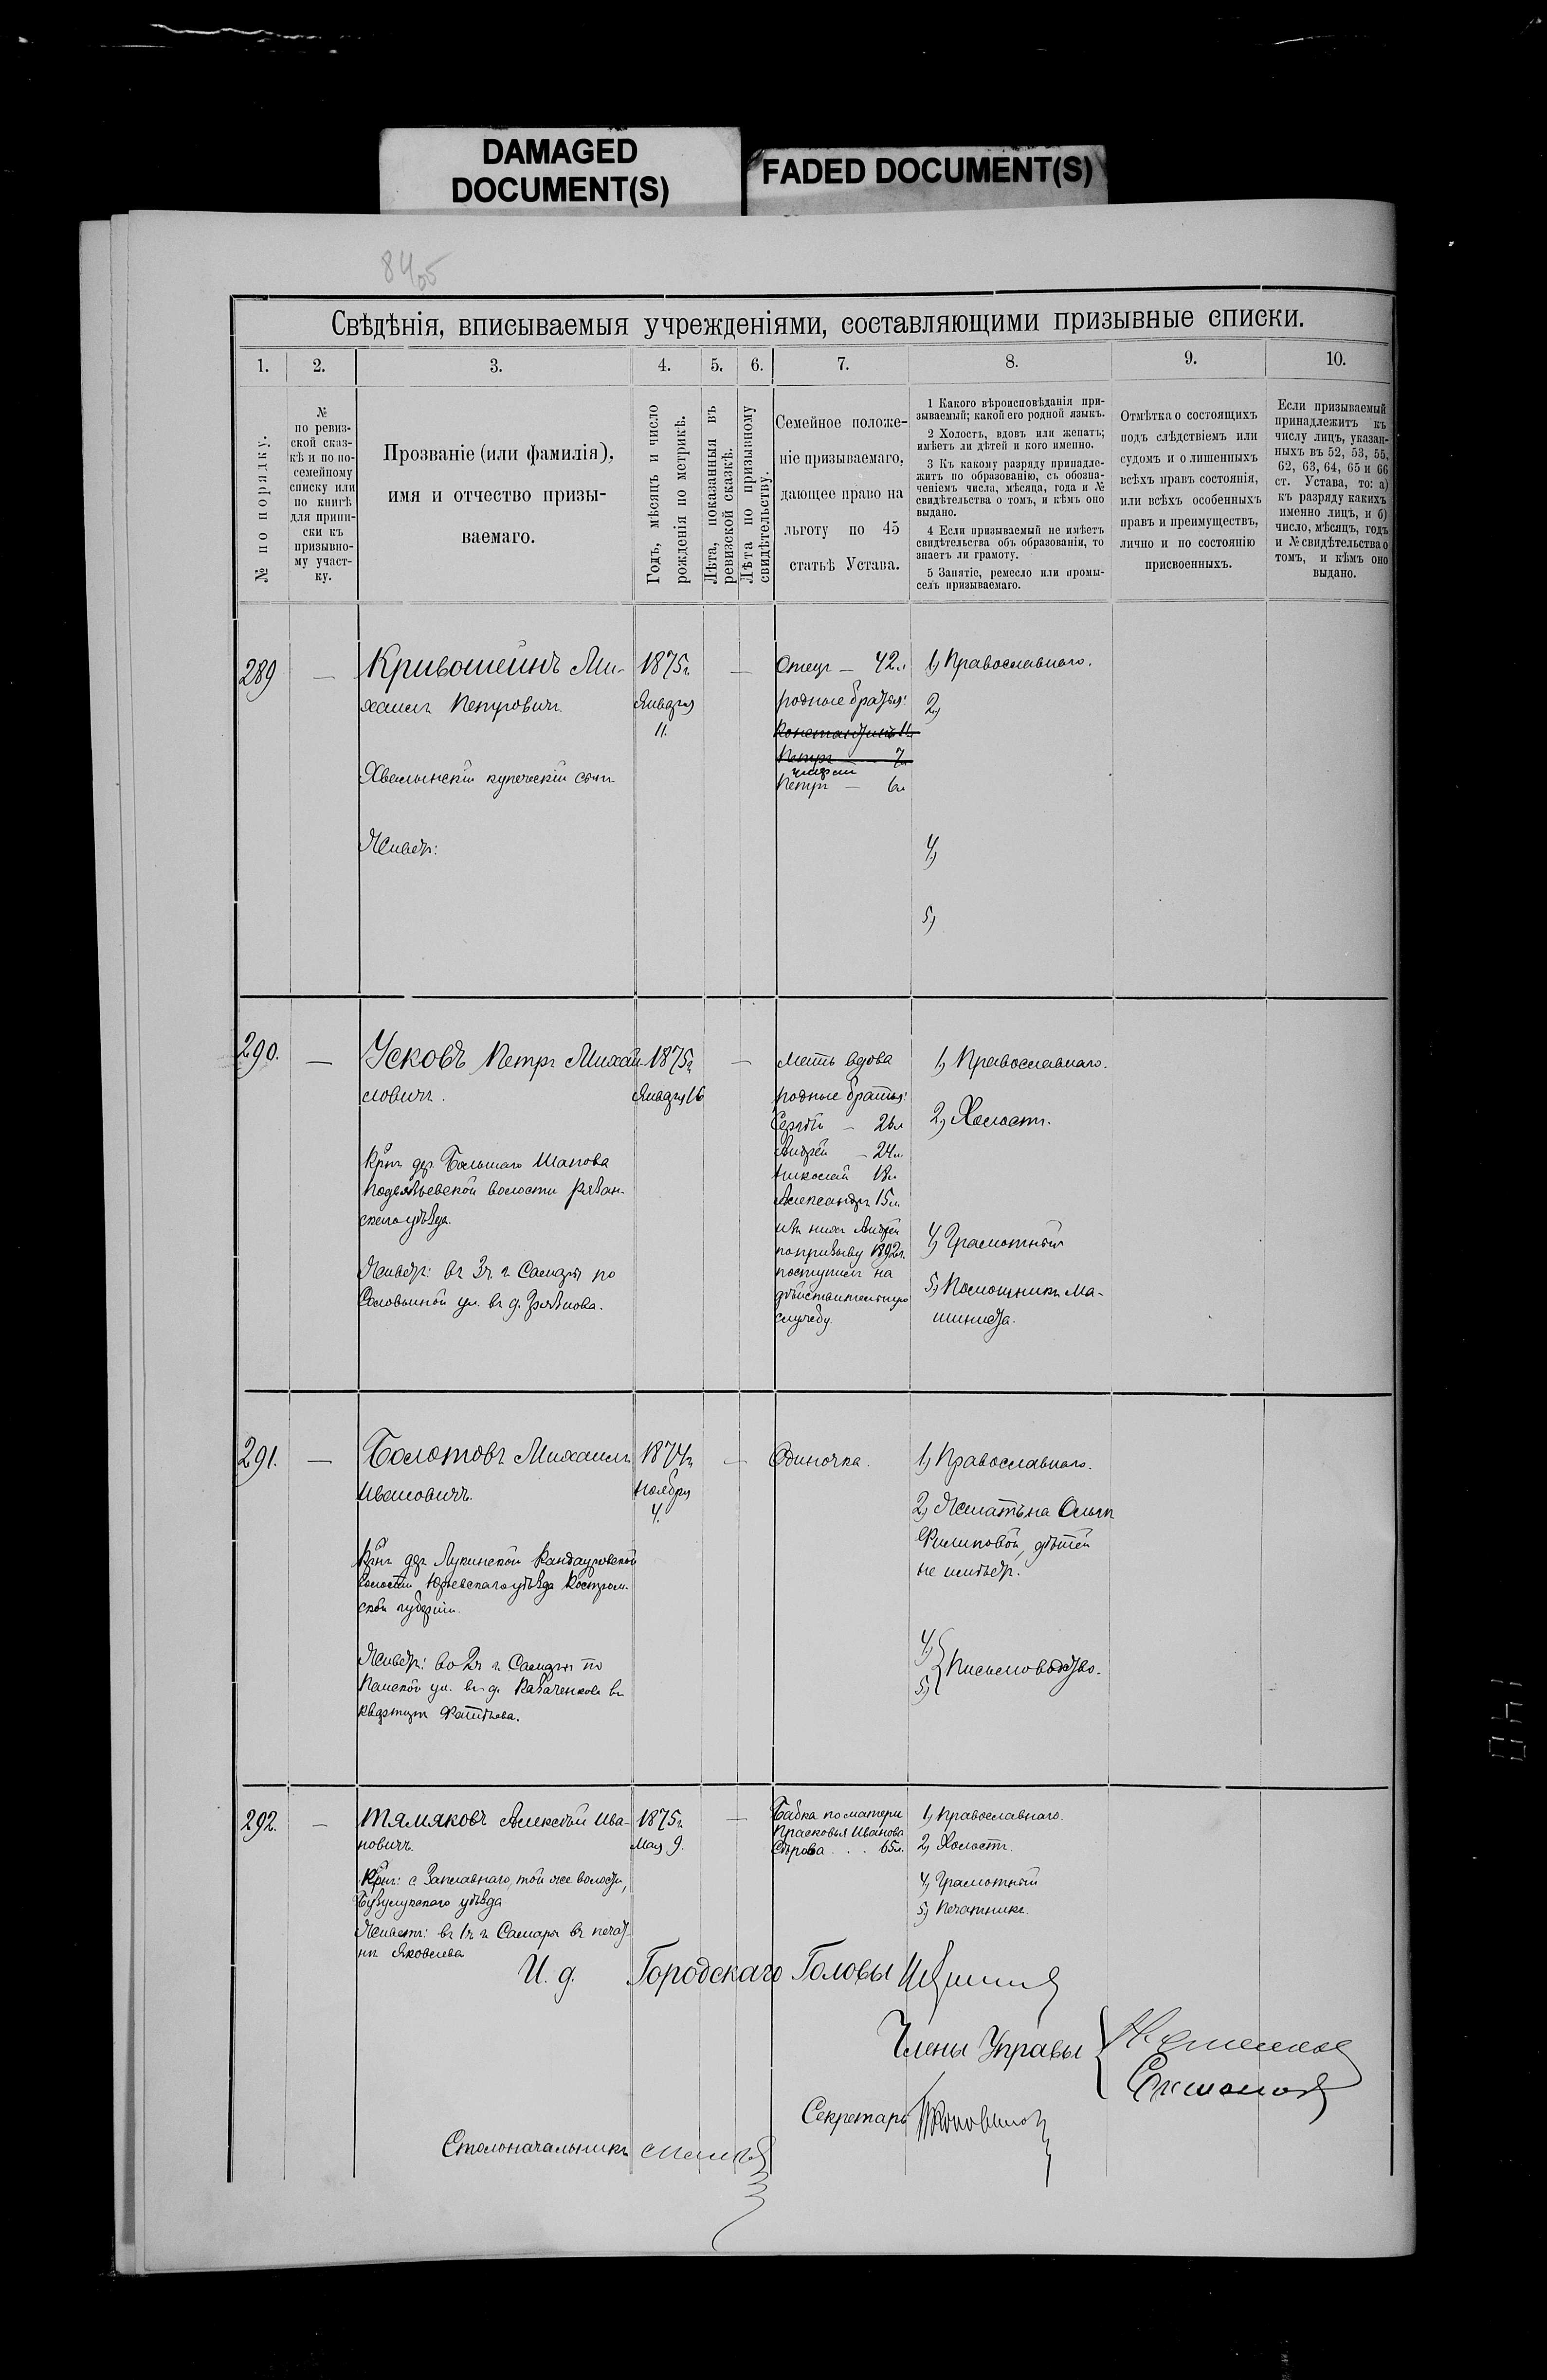 DAMAGED
DOCUMENT(S)
FADED DOCUMENT(S)
Свѣдѣнія, вписываемыя учрежденіями, составляющими призывные списки.
1. 2. 3. 4. 5. 6. 7. 8. 9. 10.
№ по порядку.
№
по ревиз-
ской сказ-
кѣ и по по-
семейному
списку или
по книгѣ
для припи-
ски къ
призывно-
му участ-
ку.
Прозваніе (или фамилія),
имя и отчество призы-
ваемаго.
Годъ, мѣсяцъ и число
рожденія по метрикѣ.
Лѣта, показанныя въ
ревизской сказкѣ.
Лѣта по призывному
свидѣтельству.
Семейное положе-
ніе призываемаго,
дающее право на
льготу по 45
статьѣ Устава.
1 Какого вѣроисповѣданія при-
зываемый; какой его родной языкъ.
2 Холостъ, вдовъ или женатъ;
имѣетъ ли дѣтей и кого именно.
3 Къ какому разряду принадле-
житъ по образованію, съ обозна-
ченіемъ числа, мѣсяца, года и №
свидѣтельства о томъ, и кѣмъ оно
выдано.
4 Если призываемый не имѣетъ
свидѣтельства объ образованіи, то
знаетъ ли грамоту.
5 Занятіе, ремесло или промы-
селъ призываемаго.
Отмѣтка о состоящихъ
подъ слѣдствіемъ или
судомъ и о лишенныхъ
всѣхъ правъ состоянія,
или всѣхъ особенныхъ
правъ и преимуществъ,
лично и по состоянію
присвоенныхъ.
Если призываемый
принадлежитъ къ
числу лицъ, указан-
ныхъ въ 52, 53, 55,
62, 63, 64, 65 и 66
ст. Устава, то: а)
къ разряду какихъ
именно лицъ, и б)
число, мѣсяцъ, годъ
и № свидѣтельства о
томъ, и кѣмъ оно
выдано.
289
—
Кривошеинъ Ми-
хаилъ Петровичъ.
Хвалынскій купеческій сынъ
Живетъ:
1875г.
Января
11.
—
Отецъ — 42л.
родные братья:
Константинъ 11л
Петръ — 7л
Петръ — 6л
1, Православнаго.
2,
4,
5,
290.
—
Усковъ Петръ Михай-
ловичъ.
Крнъ дер. Большаго Шапова
Подвязьевской волости Рязан-
скаго уѣзда.
Живетъ: въ 3ч г. Самары по
Соловьиной ул. въ д. Грязнова.
1875г
Января 16
—
Мать вдова
родные братья:
Сергѣй — 26л
Андрей — 24л
Николай 18л
Александръ 15л
изъ нихъ Андрей
по призыву 1892г.
поступилъ на
дѣйствительную
службу.
1, Православнаго.
2, Холостъ.
4, Грамотный
5, Помощникъ Ма-
шиниста.
291.
—
Болотовъ Михаилъ
Ивановичъ.
Крнъ дер. Лукинской Кандауровской
волости Юрьевскаго уѣзда Костром-
ской губерніи.
Живетъ: во 2ч г. Самары по
Панской ул. въ д. Казаченкова въ
квартирѣ Фатѣева.
1874г
Ноября
4.
—
Одиночка.
1, Православнаго.
2, Женатъ на Ольгѣ
Филиповой, дѣтей
не имѣетъ.
4,
5,
Письмоводство.
292.
—
Тямяковъ Алексѣй Ива-
новичъ.
Крнъ: с. Заплавнаго, той же волости,
Бузулукскаго уѣзда
Живетъ: въ 1ч г. Самары въ печат-
нѣ Яковлева
1875г.
Мая 9.
—
Бабка по матери
Прасковья Иванова
Сѣрова . . . 65л.
1, Православнаго.
2, Холостъ.
4, Грамотный
5, Печатникъ.
И. д. Городскаго Головы
Члены Управы
Секретарь
Столоначальникъ
140